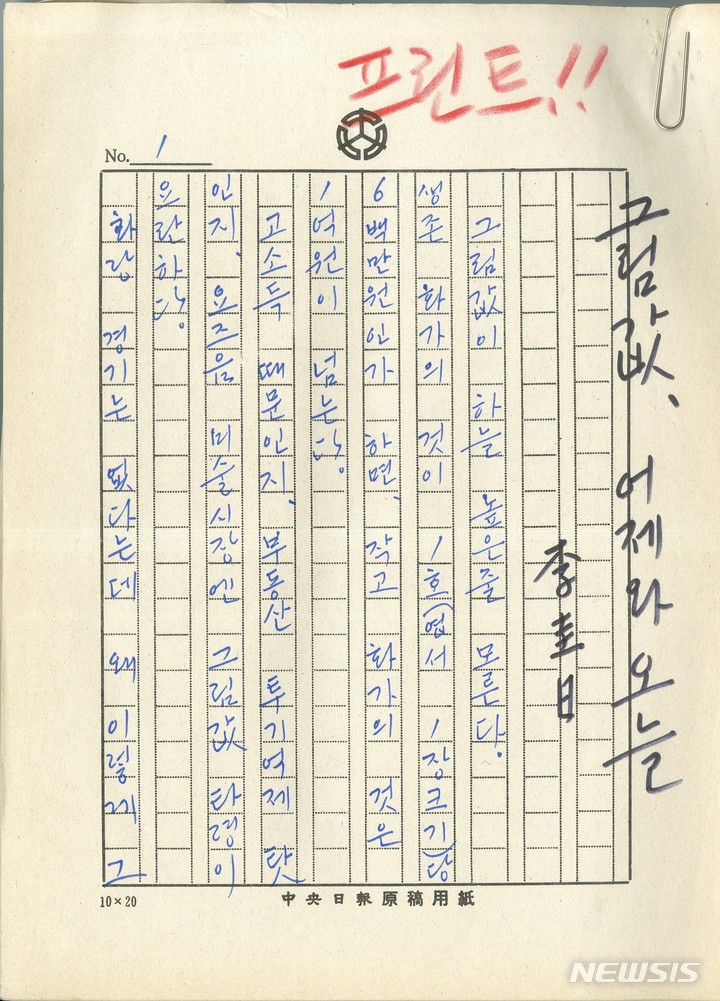 프린트!!
No. 1
그림값, 어제와 오늘
李圭日
그림값이 하늘 높은줄 모른다.
생존 화가의 것이 1호(엽서 1장크기)당
6백만원인가 하면, 작고 화가의 것은
1억원이 넘는다.
고소득 때문인지, 부동산 투기억제 탓
인지, 요즈음 미술시장엔 그림값 타령이
요란하다.
화랑 경기는 없다는데 왜 이렇게 그
10×20
中央日報原稿用紙
NEWSIS